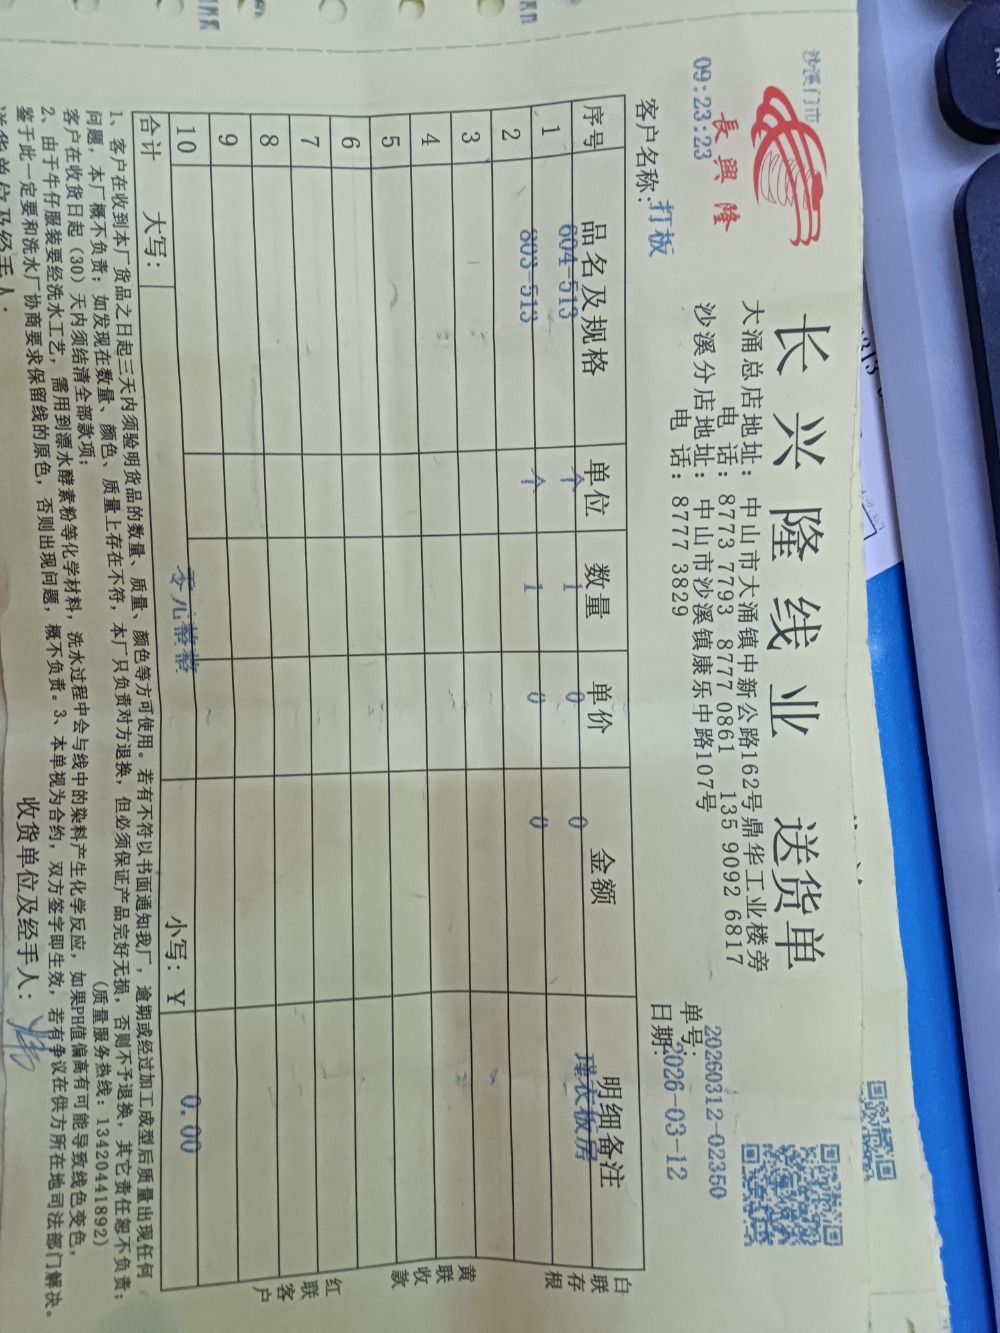 沙溪门市
09:23:23
長興隆
长兴隆线业 送货单
大涌总店地址：中山市大涌镇中新公路162号鼎华工业楼旁
电 话：8773 7793 8777 0861 135 9092 6817
沙溪分店地址：中山市沙溪镇康乐中路107号
电 话：8777 3829
单号：20260312-02350
日期：2026-03-12
客户名称：打板
序号 品名及规格 单位 数量 单价 金额 明细备注
1 604-513 个 1 0 0
2 803-513 个 1 0 0
3
4
5
6
7
8
9
10
合计 大写： 零元整整 小写：￥ 0.00
白联存根
黄联收款
红联客户
1、客户在收到本厂货品之日起三天内须验明货品的数量、质量、颜色等方可使用。若有不符以书面通知我厂，逾期或经过加工成型后质量出现任何
问题，本厂概不负责；如发现在数量、颜色、质量上存在不符，本厂只负责对方退换，但必须保证产品完好无损，否则不予退换，其它责任恕不负责；
客户在收货日起（30）天内须结清全部款项； （质量服务热线：13420441892）
2、由于牛仔服装要经洗水工艺，需用到漂水酵素粉等化学材料，洗水过程中会与线中的染料产生化学反应，如果PH值偏高有可能导致线色变色，
鉴于此一定要和洗水厂协商要求保留线的原色，否则出现问题，概不负责。3、本单视为合约，双方签字即生效，若有争议在供方所在地司法部门解决。
送货单位及经手人： 收货单位及经手人：